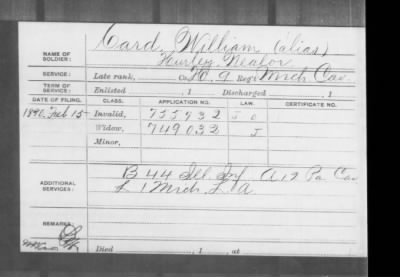 Card, William (alias)
NAME OF SOLDIER: Hurley, Nealor
SERVICE: Late rank, Co. H, 9 Reg't Mich Cav.
TERM OF SERVICE: Enlisted , 1 Discharged , 1
DATE OF FILING. CLASS. APPLICATION NO. LAW. CERTIFICATE NO.
1890. Feb 15 Invalid, 755932
Widow, 749032 J
Minor,
ADDITIONAL SERVICES: B 44 Ill. Inf A 12 Pa Cav
L 1 Mich L A
REMARKS:
Died , 1 , at